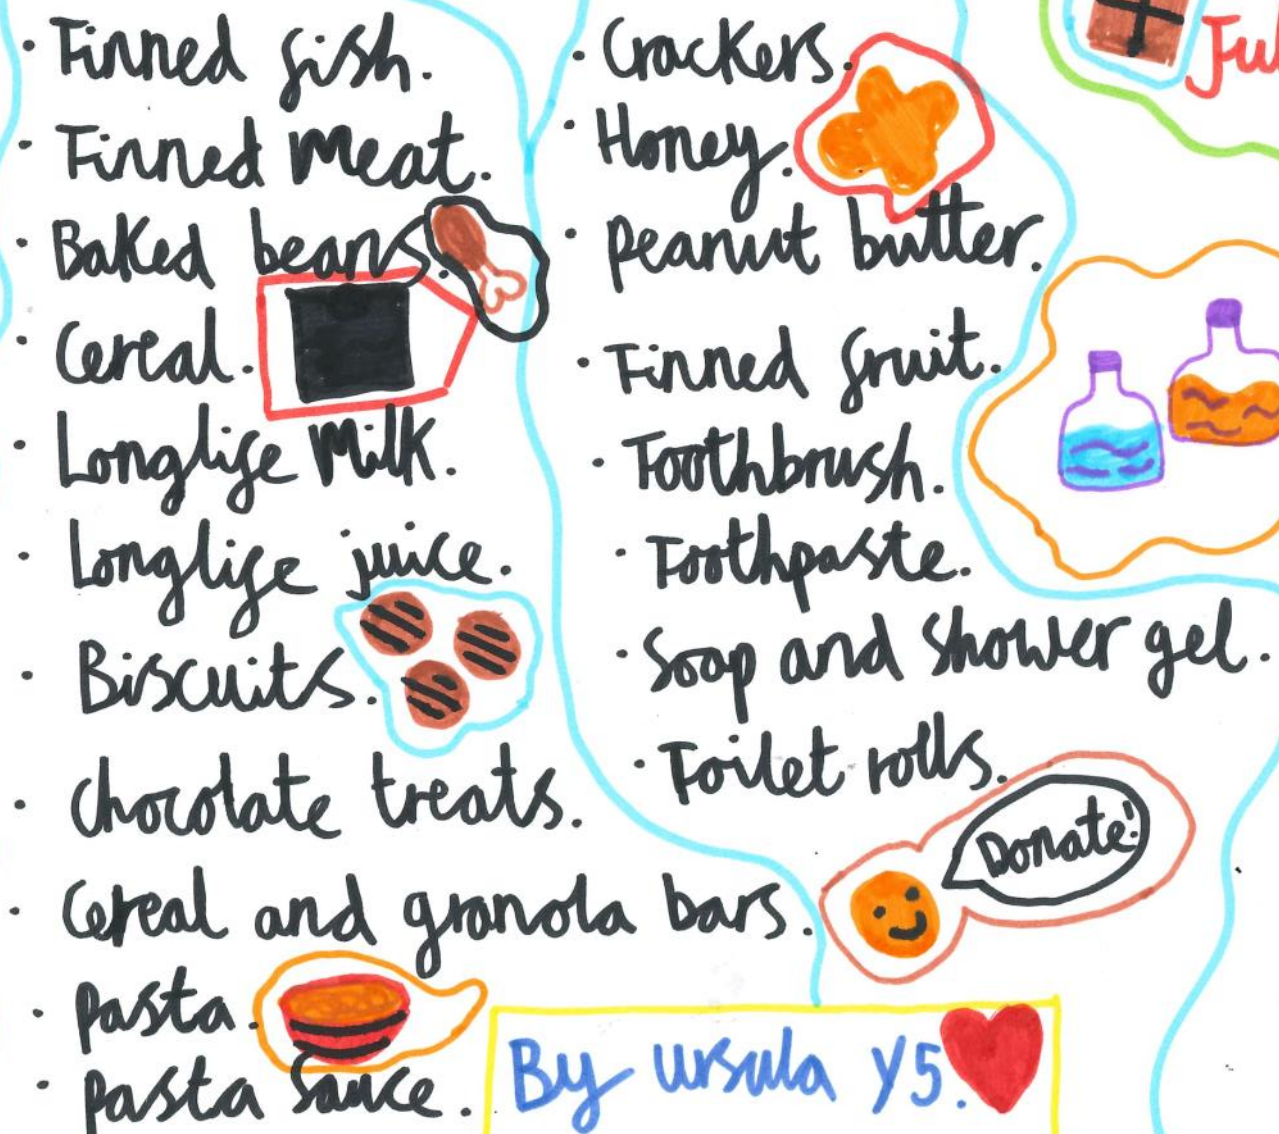 · Tinned fish.
· Tinned meat.
· Baked beans.
· Cereal.
· Longlife Milk.
· Longlife juice.
· Biscuits.
· chocolate treats.
· Cereal and granola bars.
· pasta.
· pasta sauce.
· Crackers.
· Honey.
· peanut butter.
· Tinned fruit.
· Toothbrush.
· Toothpaste.
· Soap and shower gel.
· Toilet rolls.
Donate!
By ursula Y5.